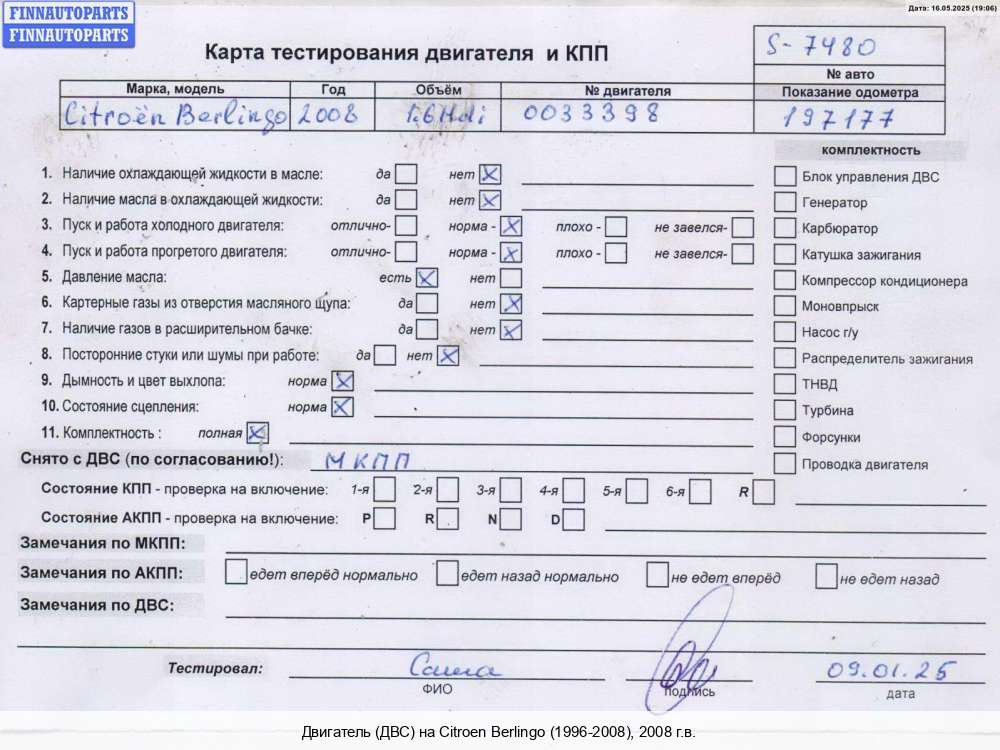 FINNAUTOPARTS
FINNAUTOPARTS
Дата: 16.05.2025 (19:06)
Карта тестирования двигателя и КПП
S-7480
№ авто
Марка, модель Год Объём № двигателя Показание одометра
Citroën Berlingo 2008 1.6Hdi 0033398 197177
комплектность
1. Наличие охлаждающей жидкости в масле: да нет X
Блок управления ДВС
2. Наличие масла в охлаждающей жидкости: да нет X
Генератор
3. Пуск и работа холодного двигателя: отлично- норма - X плохо - не завелся-
Карбюратор
4. Пуск и работа прогретого двигателя: отлично- норма - X плохо - не завелся-
Катушка зажигания
5. Давление масла: есть X нет
Компрессор кондиционера
6. Картерные газы из отверстия масляного щупа: да нет X
Моновпрыск
7. Наличие газов в расширительном бачке: да нет X
Насос г/у
8. Посторонние стуки или шумы при работе: да нет X
Распределитель зажигания
9. Дымность и цвет выхлопа: норма X
ТНВД
10. Состояние сцепления: норма X
Турбина
11. Комплектность : полная X
Форсунки
Снято с ДВС (по согласованию!): МКПП
Проводка двигателя
Состояние КПП - проверка на включение: 1-я 2-я 3-я 4-я 5-я 6-я R
Состояние АКПП - проверка на включение: P R N D
Замечания по МКПП:
Замечания по АКПП: едет вперёд нормально едет назад нормально не едет вперёд не едет назад
Замечания по ДВС:
Тестировал: Саша 09.01.25
ФИО подпись дата
Двигатель (ДВС) на Citroen Berlingo (1996-2008), 2008 г.в.